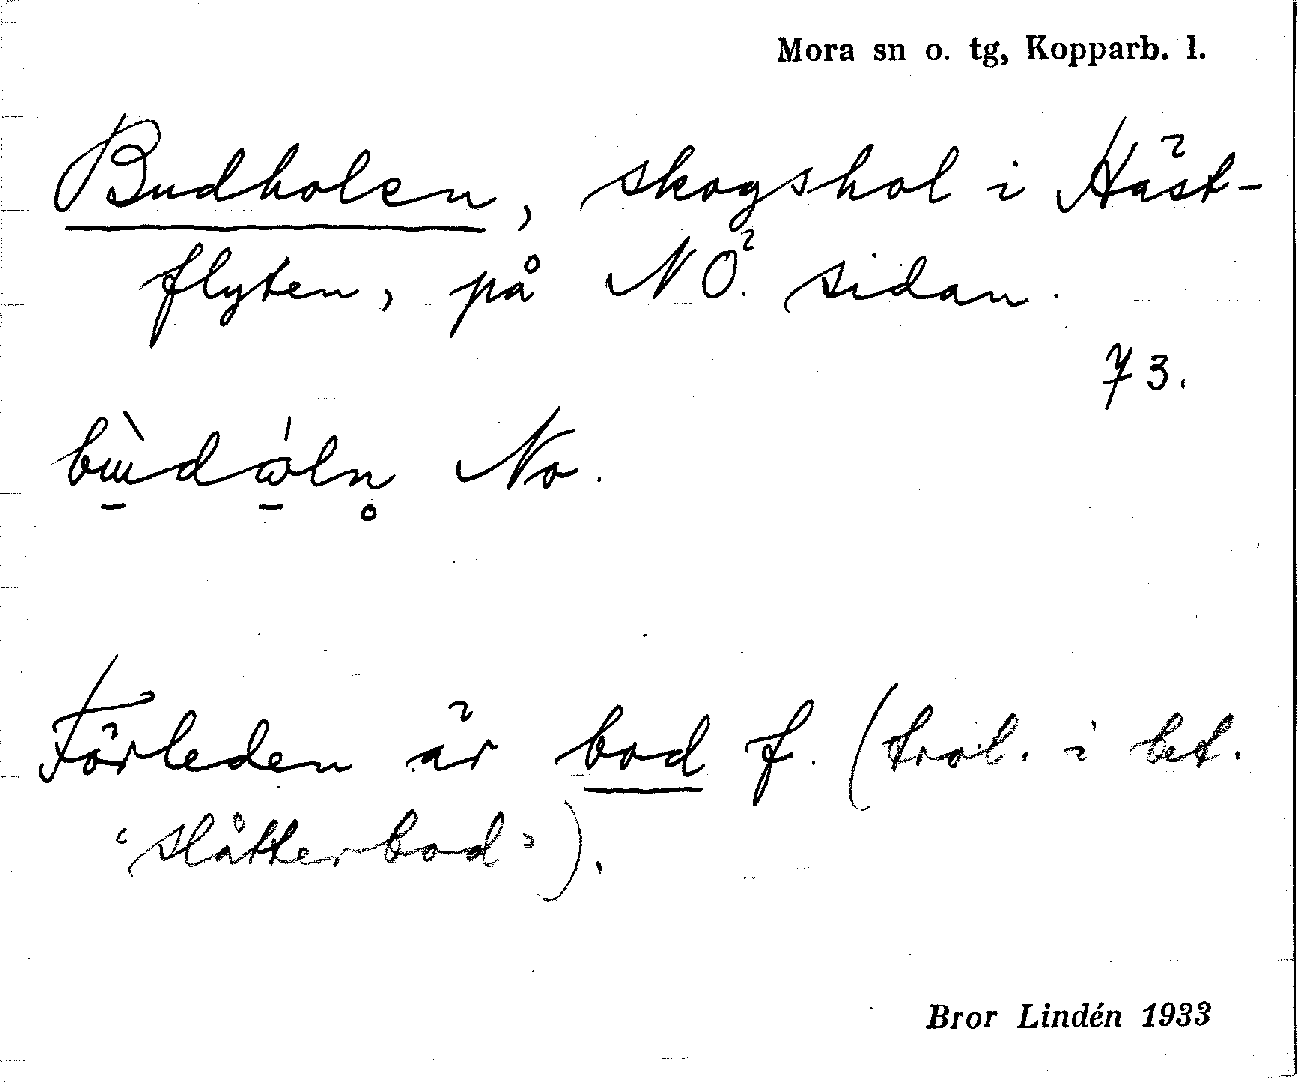 Mora sn o. tg, Kopparb. l.
Budholen, skogshol i Häst-
flyten, på NÖ. sidan.
73.
No.
Förleden är bod f. (trol. i bet.
‘slåtterbod’).
Bror Lindén 1933